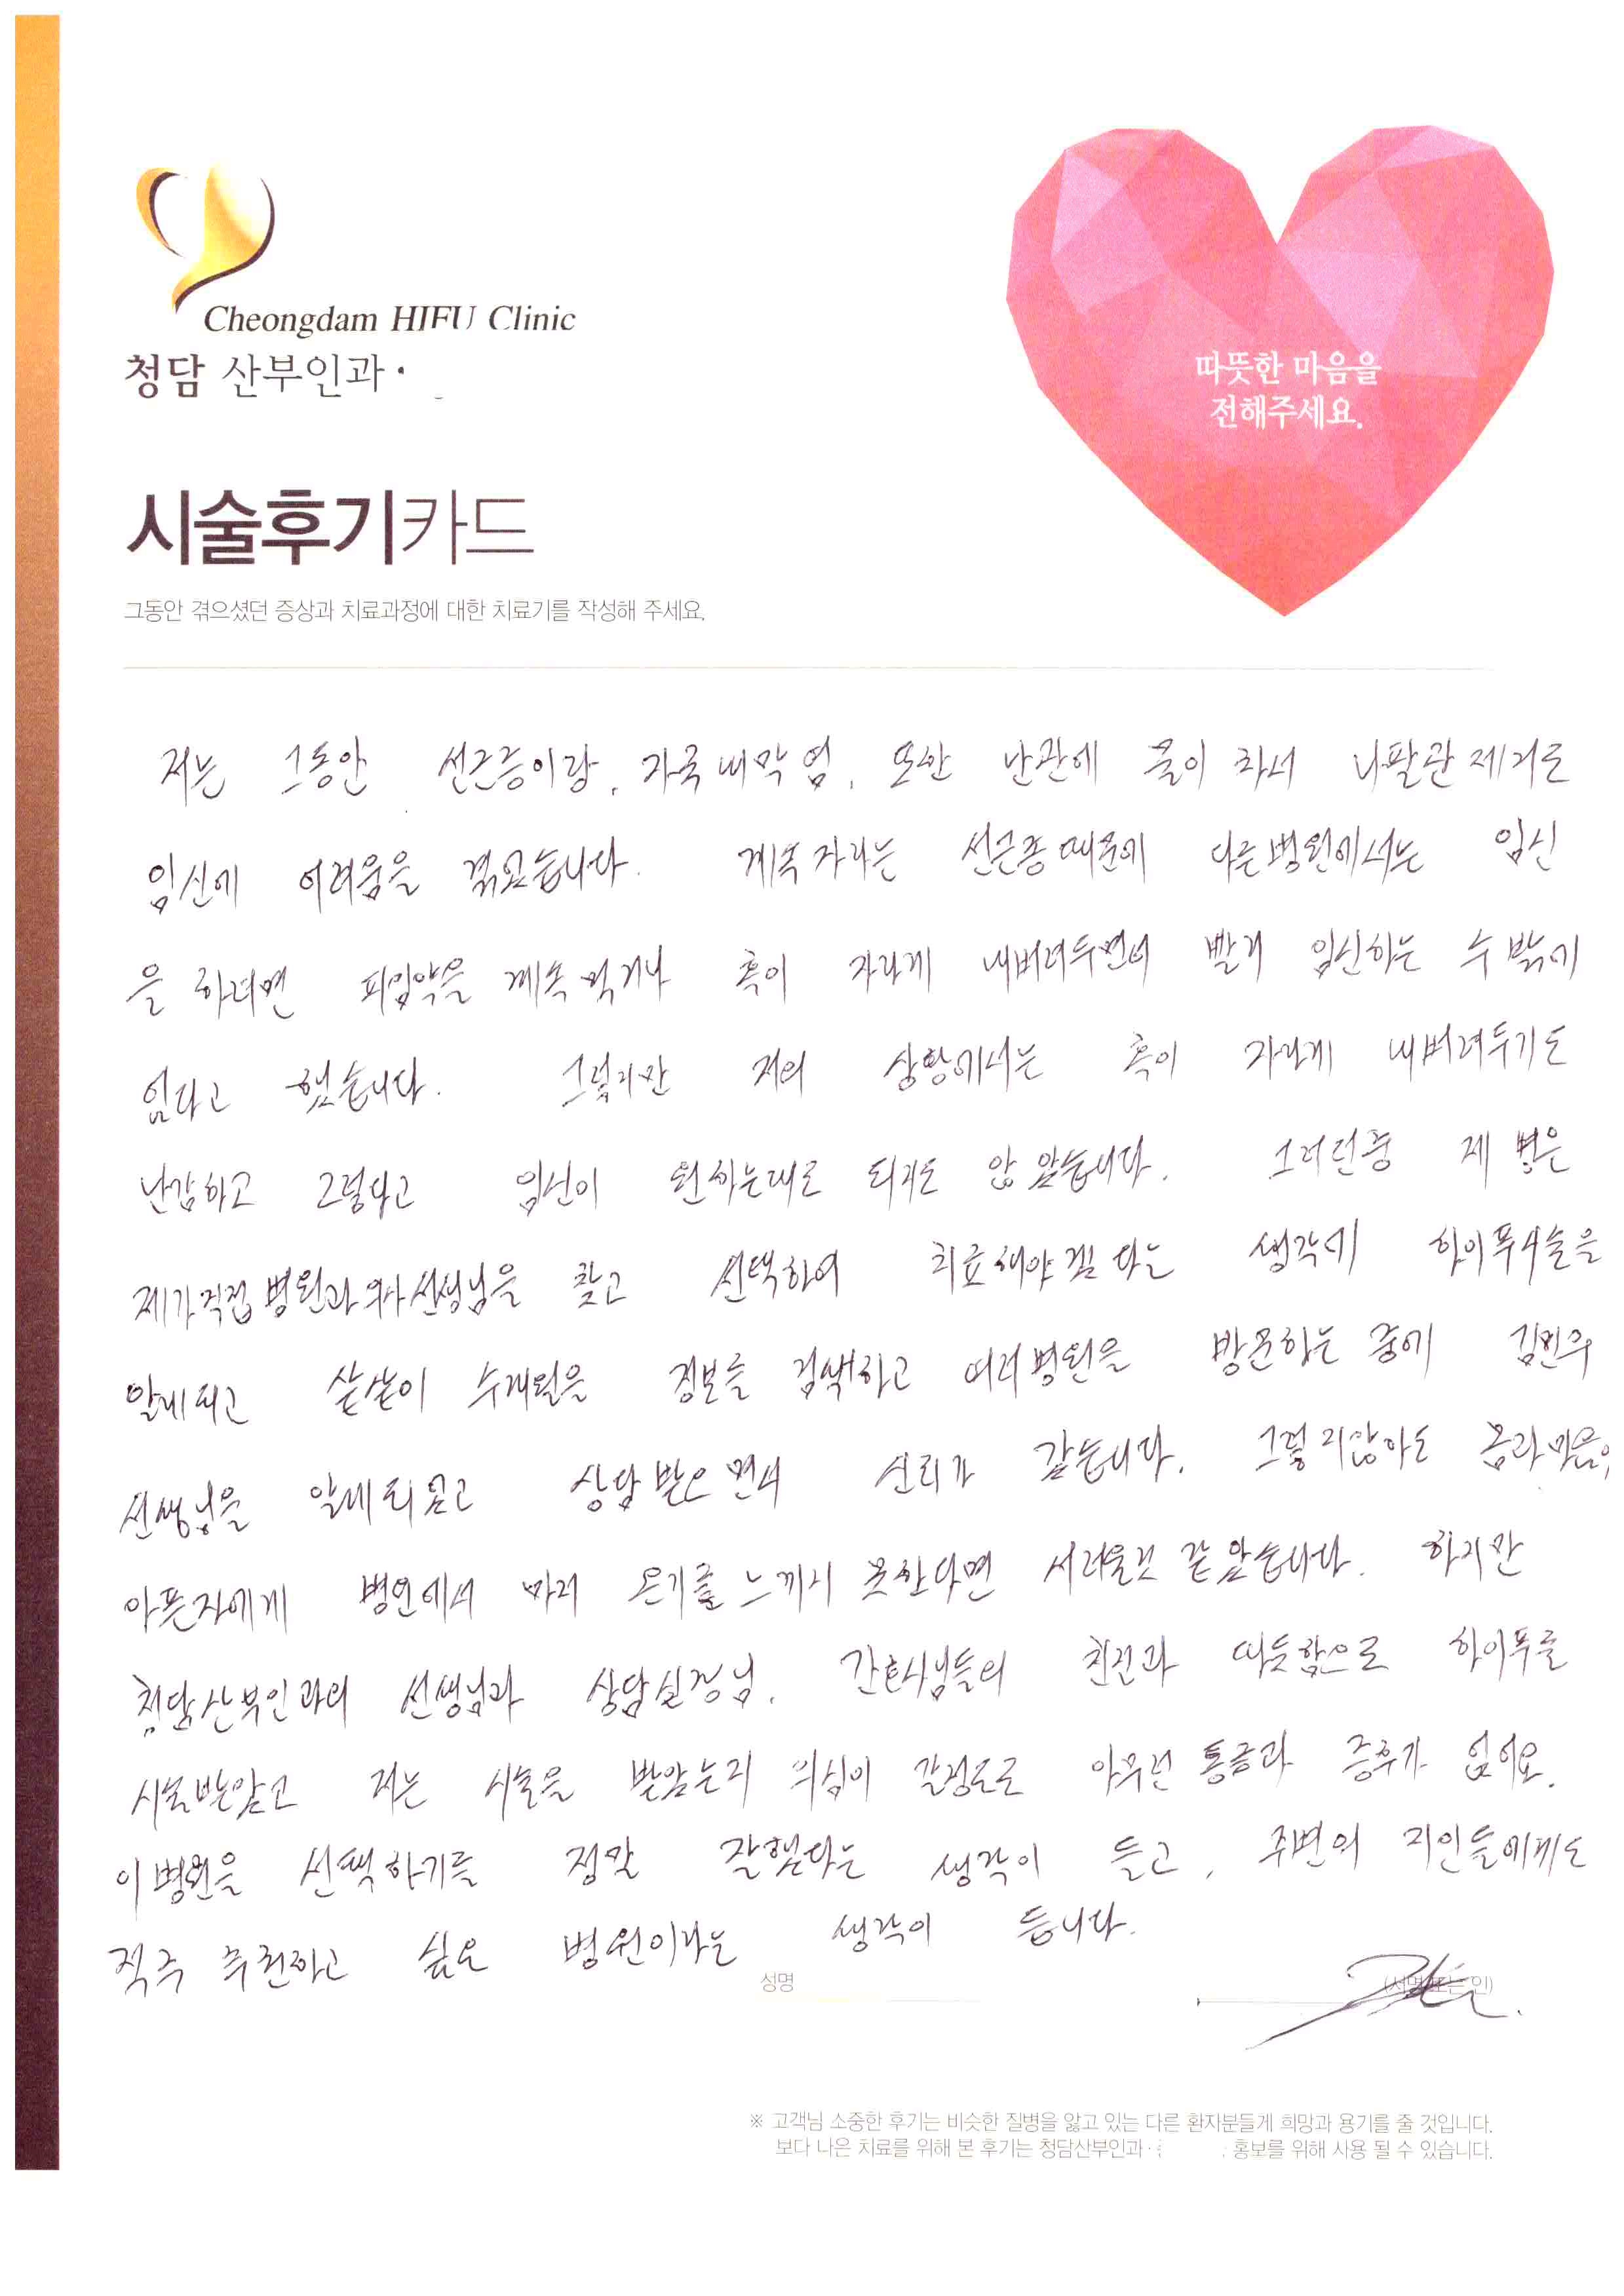 Cheongdam HIFU Clinic
청담 산부인과·
따뜻한 마음을
전해주세요.
시술후기카드
그동안 겪으셨던 증상과 치료과정에 대한 치료기를 작성해 주세요.
저는 그동안 선근증이랑, 자궁내막염, 또한 난관에 물이 차서 나팔관 제거도
임신에 어려움을 겪었습니다. 계속 자라는 선근증 때문에 다른병원에서는 임신
을 하려면 피임약을 계속 먹거나 혹이 자라게 내버려두면서 빨리 임신하는 수 밖에
없다고 했습니다. 그렇지만 저의 상황에서는 혹이 자라게 내버려두기도
난감하고 그렇다고 임신이 원하는대로 되지도 않았습니다. 그러던중 제 병은
제가직접 병원과 의사선생님을 찾고 선택하여 치료해야겠다는 생각에 하이푸시술을
알게되고 샅샅이 수개월을 정보를 검색하고 여러병원을 방문하는 중에 김민우
선생님을 알게되었고 상담받으면서 신뢰가 갔습니다. 그렇지않아도 몸과마음이
아픈자에게 병원에서 마저 온기를 느끼지 못한다면 서러울것 같았습니다. 하지만
청담산부인과의 선생님과 상담실장님, 간호사님들의 친절과 따듯함으로 하이푸를
시술받았고 저는 시술을 받았는지 의심이 갈정도로 아무런 통증과 증후가 없어요.
이병원을 선택하기를 정말 잘했다는 생각이 들고, 주변의 지인들에게도
적극 추천하고 싶은 병원이라는 생각이 듭니다.
성명 (서명 또는 인)
※ 고객님 소중한 후기는 비슷한 질병을 앓고 있는 다른 환자분들게 희망과 용기를 줄 것입니다.
보다 나은 치료를 위해 본 후기는 청담산부인과· 홍보를 위해 사용 될 수 있습니다.